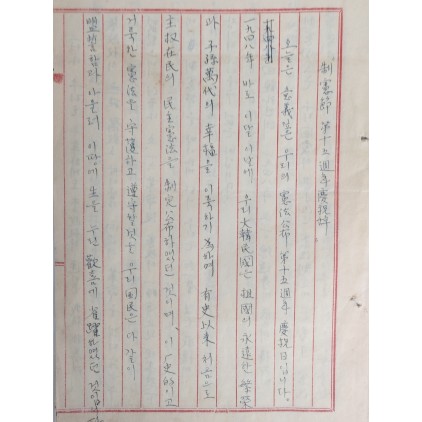 制憲節 第十五週年 慶祝辞
오늘은 意義깊은 우리의 憲法公布 第十五週年 慶祝日입니다.
一九四八年 바로 이달 이날에 우리 大韓民國은 祖國의 永遠한 繁榮
과 子孫萬代의 幸福을 이룩하기 爲하여 有史以來 처음으로
主权在民의 民主憲法을 制定 公布하였던 것이며, 이 歷史的이고
거룩한 憲法을 守護하고 遵守할 것을 우리 國民은 다 같이
盟誓함과 아울러 이 땅에 生을 누린 歡喜에 雀躍하였던 것입니다